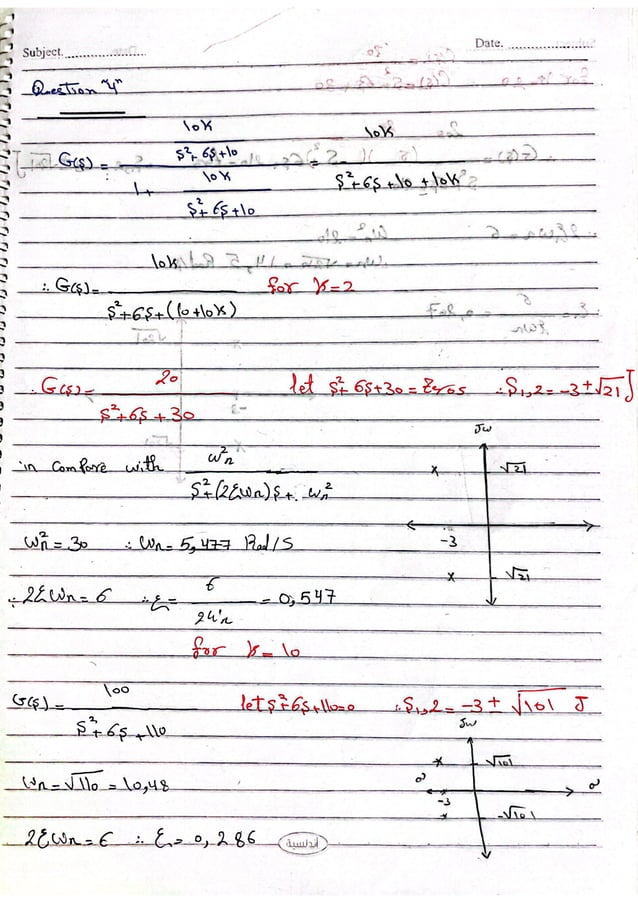 Subject. .................... Date. ....................
Question "4"
G(s) = (10K / (s²+6s+10)) / (1+ 10K / (s²+6s+10)) = 10K / (s²+6s+10+10K)
∴ G(s) = 10K / (s²+6s+(10+10K)) for K=2
∴ G(s) = 20 / (s²+6s+30) let s²+6s+30 = Zeros ∴ S1,2 = -3±√21 J
Jw
√21
-3
√21
in compare with ω²n / (s²+(2ξωn)s+ωn²)
ωn² = 30 ∴ ωn = 5,477 Rad/s
∴ 2ξωn = 6 ∴ ξ = 6 / 2ωn = 0,547
for K=10
G(s) = 100 / (s²+6s+110) let s²+6s+110=0 ∴ S1,2 = -3 ± √101 J
Jw
√101
-3
-√101
ωn = √110 = 10,48
2ξωn = 6 ∴ ξ = 0,286
أندلسية